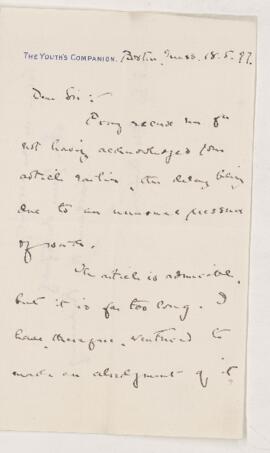 THE YOUTH'S COMPANION. Boston, Mass. 18. 5. 97.
Dear Sir:
Pray excuse me for
not having acknowledged your
article earlier, the delay being
due to an unusual pressure
of work.
The article is admirable,
but it is far too long. I
have, therefore, ventured to
make an abridgment of it